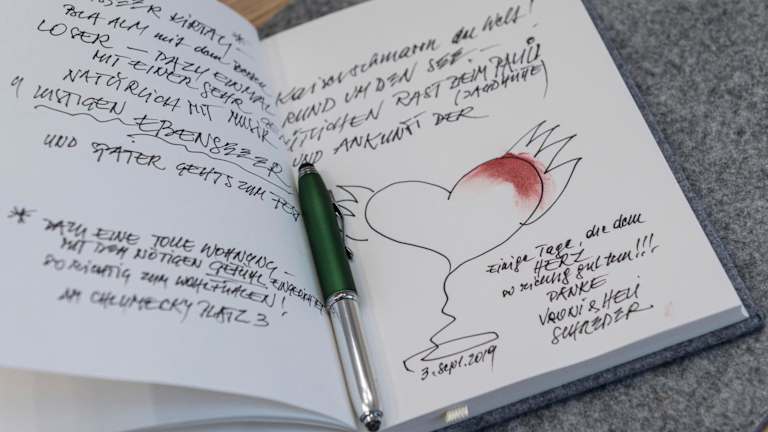 KIRTAG –
BLA ALM mit dem
LOSER – DAZU EINMAL
MIT EINER SEHR
NATÜRLICH MIT MUSIK
LUSTIGEN EBENSEER
UND SPÄTER GEHTS ZUM FEST
* DAZU EINE TOLLE WOHNUNG –
MIT DEM NÖTIGEN GEFÜHL EINGERICHTET
SO RICHTIG ZUM WOHLFÜHLEN!
AM CHLUMECKY PLATZ 3
Kaiserschmarrn der Welt!
RUND UM DEN SEE –
RAST BEIM PAULI
(JAGDHÜTTE)
UND ANKUNFT DER
Einige Tage, die dem
HERZ
so richtig gut tun!!!
DANKE
VRONI & HELI
SCHREDER
3. Sept. 2019